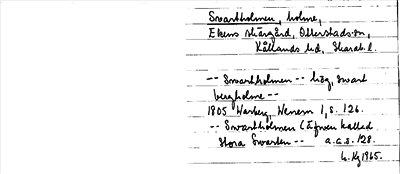 Svartholmen, holme,
Ekens skärgård, Otterstads sn,
Kållands hd, Skarab. l.
-- Svartholmen -- hög, svart
bergholme --
1805 Warberg, Wenern 1, s. 126.
-- Svartholmen (äfven kallad
Stora Svarten -- a.a.s. 128.
1965.